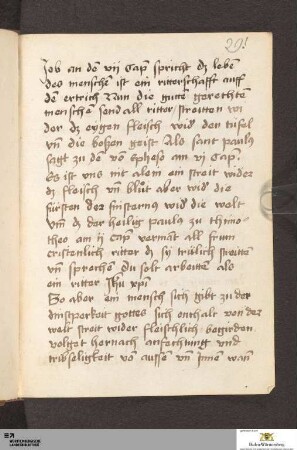 291
Job an dē vij Cap spricht dz lebē
des menschē ist ein ritterschafft auff
dē ertrich Nun die gutē gerechtē
menschē send all ritter streitten wi
der dz eygen fleisch wid den tüfel
vn̄ die bossen geist Als sant paulꝰ
sagt zu dē vō Epheso am vj Cap
Es ist vns nit alein ein streit wider
dz fleisch vn̄ blůt aber wid die
fürsten der finsternus wid die welt
Vn̄ dz der heilig paulꝰ zu thimo
theo am ij Cap vermāt all frum
cristenlich ritter dz sy trülich streittē
vn̄ sprechē du solt arbeittē als
ein ritter Jhu xp̄i
So aber ein mensch sich gibt zu der
dinstperkeit gottes sich enthalt von der
welt streit wider fleischlich begirden
volget hernach anfechtung und
tribseligkeit vō aussen vn̄ Jnnē wan̄
Baden-Württemberg